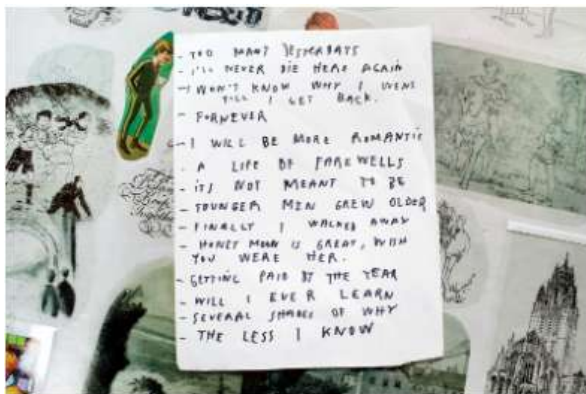 - TOO MANY YESTERDAYS
- I'LL NEVER DIE HERE AGAIN
- I WON'T KNOW WHY I WENT
TILL I GET BACK.
- FORNEVER
- I WILL BE MORE ROMANTIC
- A LIFE OF FAREWELLS
- ITS NOT MEANT TO BE
- YOUNGER MEN GREW OLDER
- FINALLY I WALKED AWAY
- HONEY MOON IS GREAT, WISH
YOU WERE HER.
- GETTING PAID BY THE YEAR
- WILL I EVER LEARN
- SEVERAL SHADES OF WHY
- THE LESS I KNOW